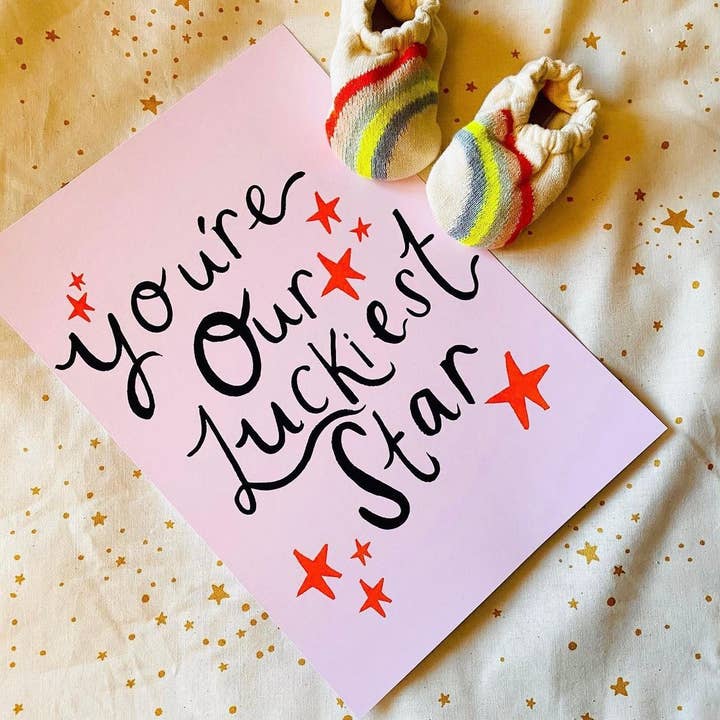 You're
Our
Luckiest
Star